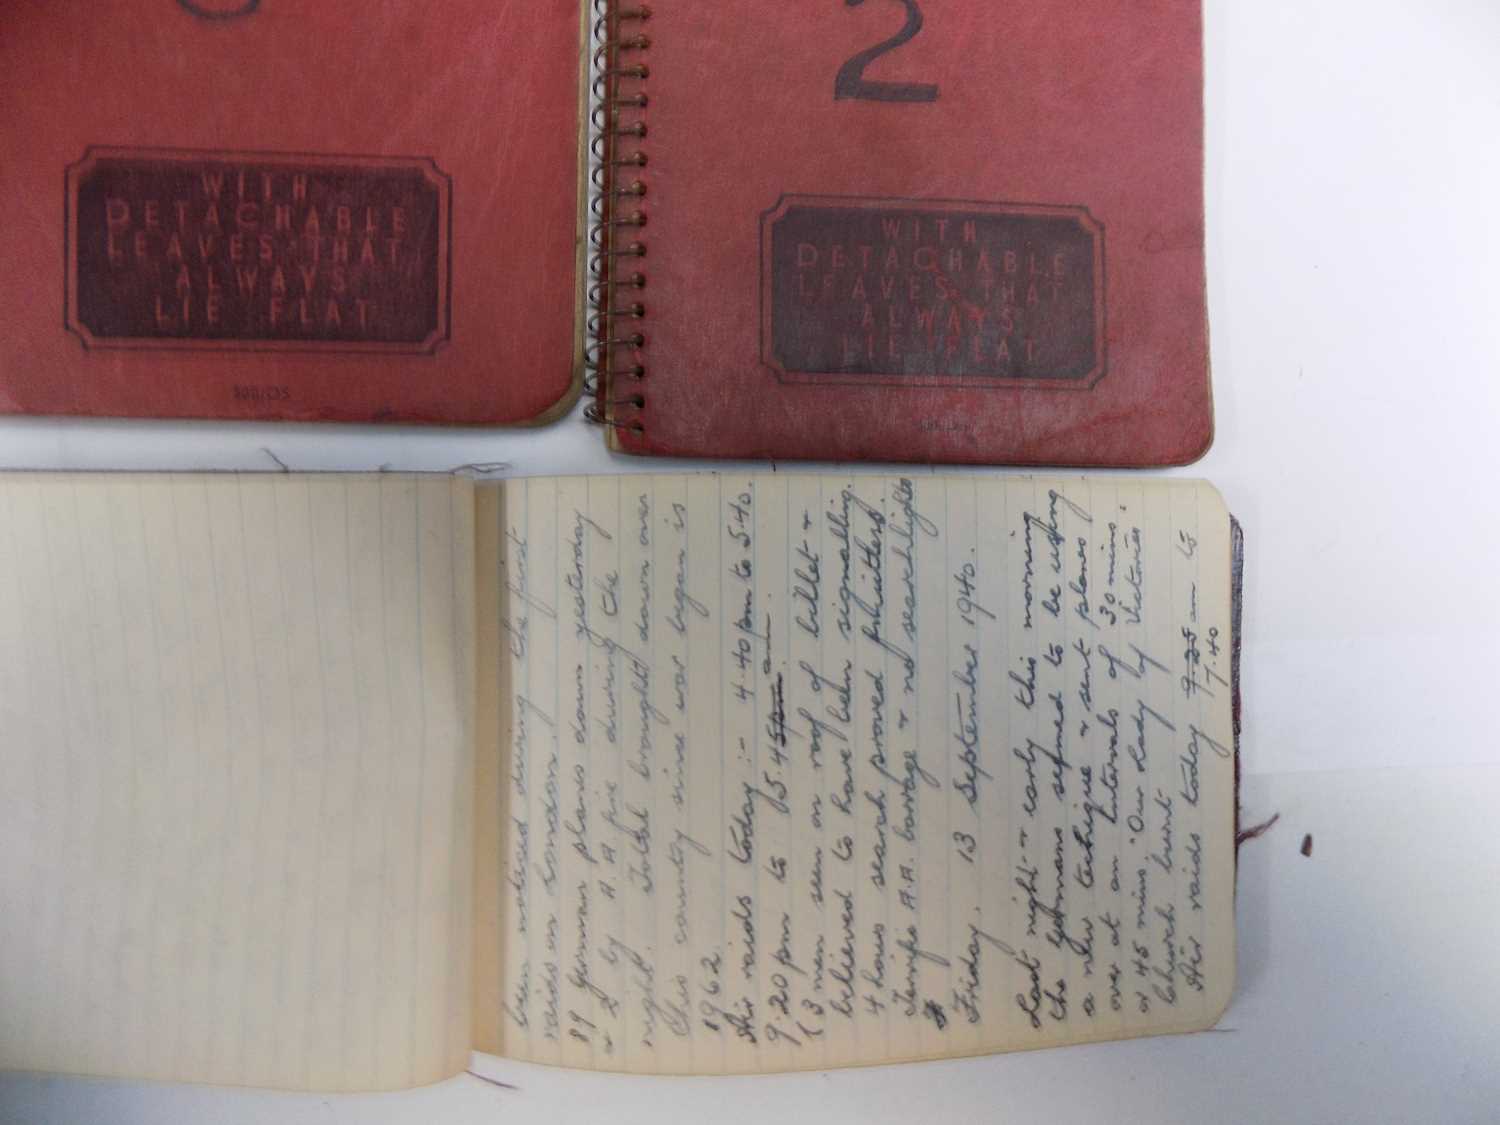 WITH
DETACHABLE
LEAVES THAT
ALWAYS
LIE FLAT
2
WITH
DETACHABLE
LEAVES THAT
ALWAYS
LIE FLAT
been noticed during the first
raids on London.
89 German planes down yesterday
& 2 by A.A fire during the
night. Total brought down over
this country since war began is
1962.
Air raids today :- 4.40 pm to 5.40.
9.20 pm to 5.45 pm am.
(3 men seen on roof of billet &
believed to have been signalling.
4 hours search proved fruitless.
Terrific A.A. barrage & no searchlights
Friday. 13 September 1940.
Last night & early this morning
the Germans seemed to be using
a new technique & sent planes
over at an intervals of 30 mins.
or 45 mins. "Our Lady of Victories
Church burnt
Air raids today am to
7.40